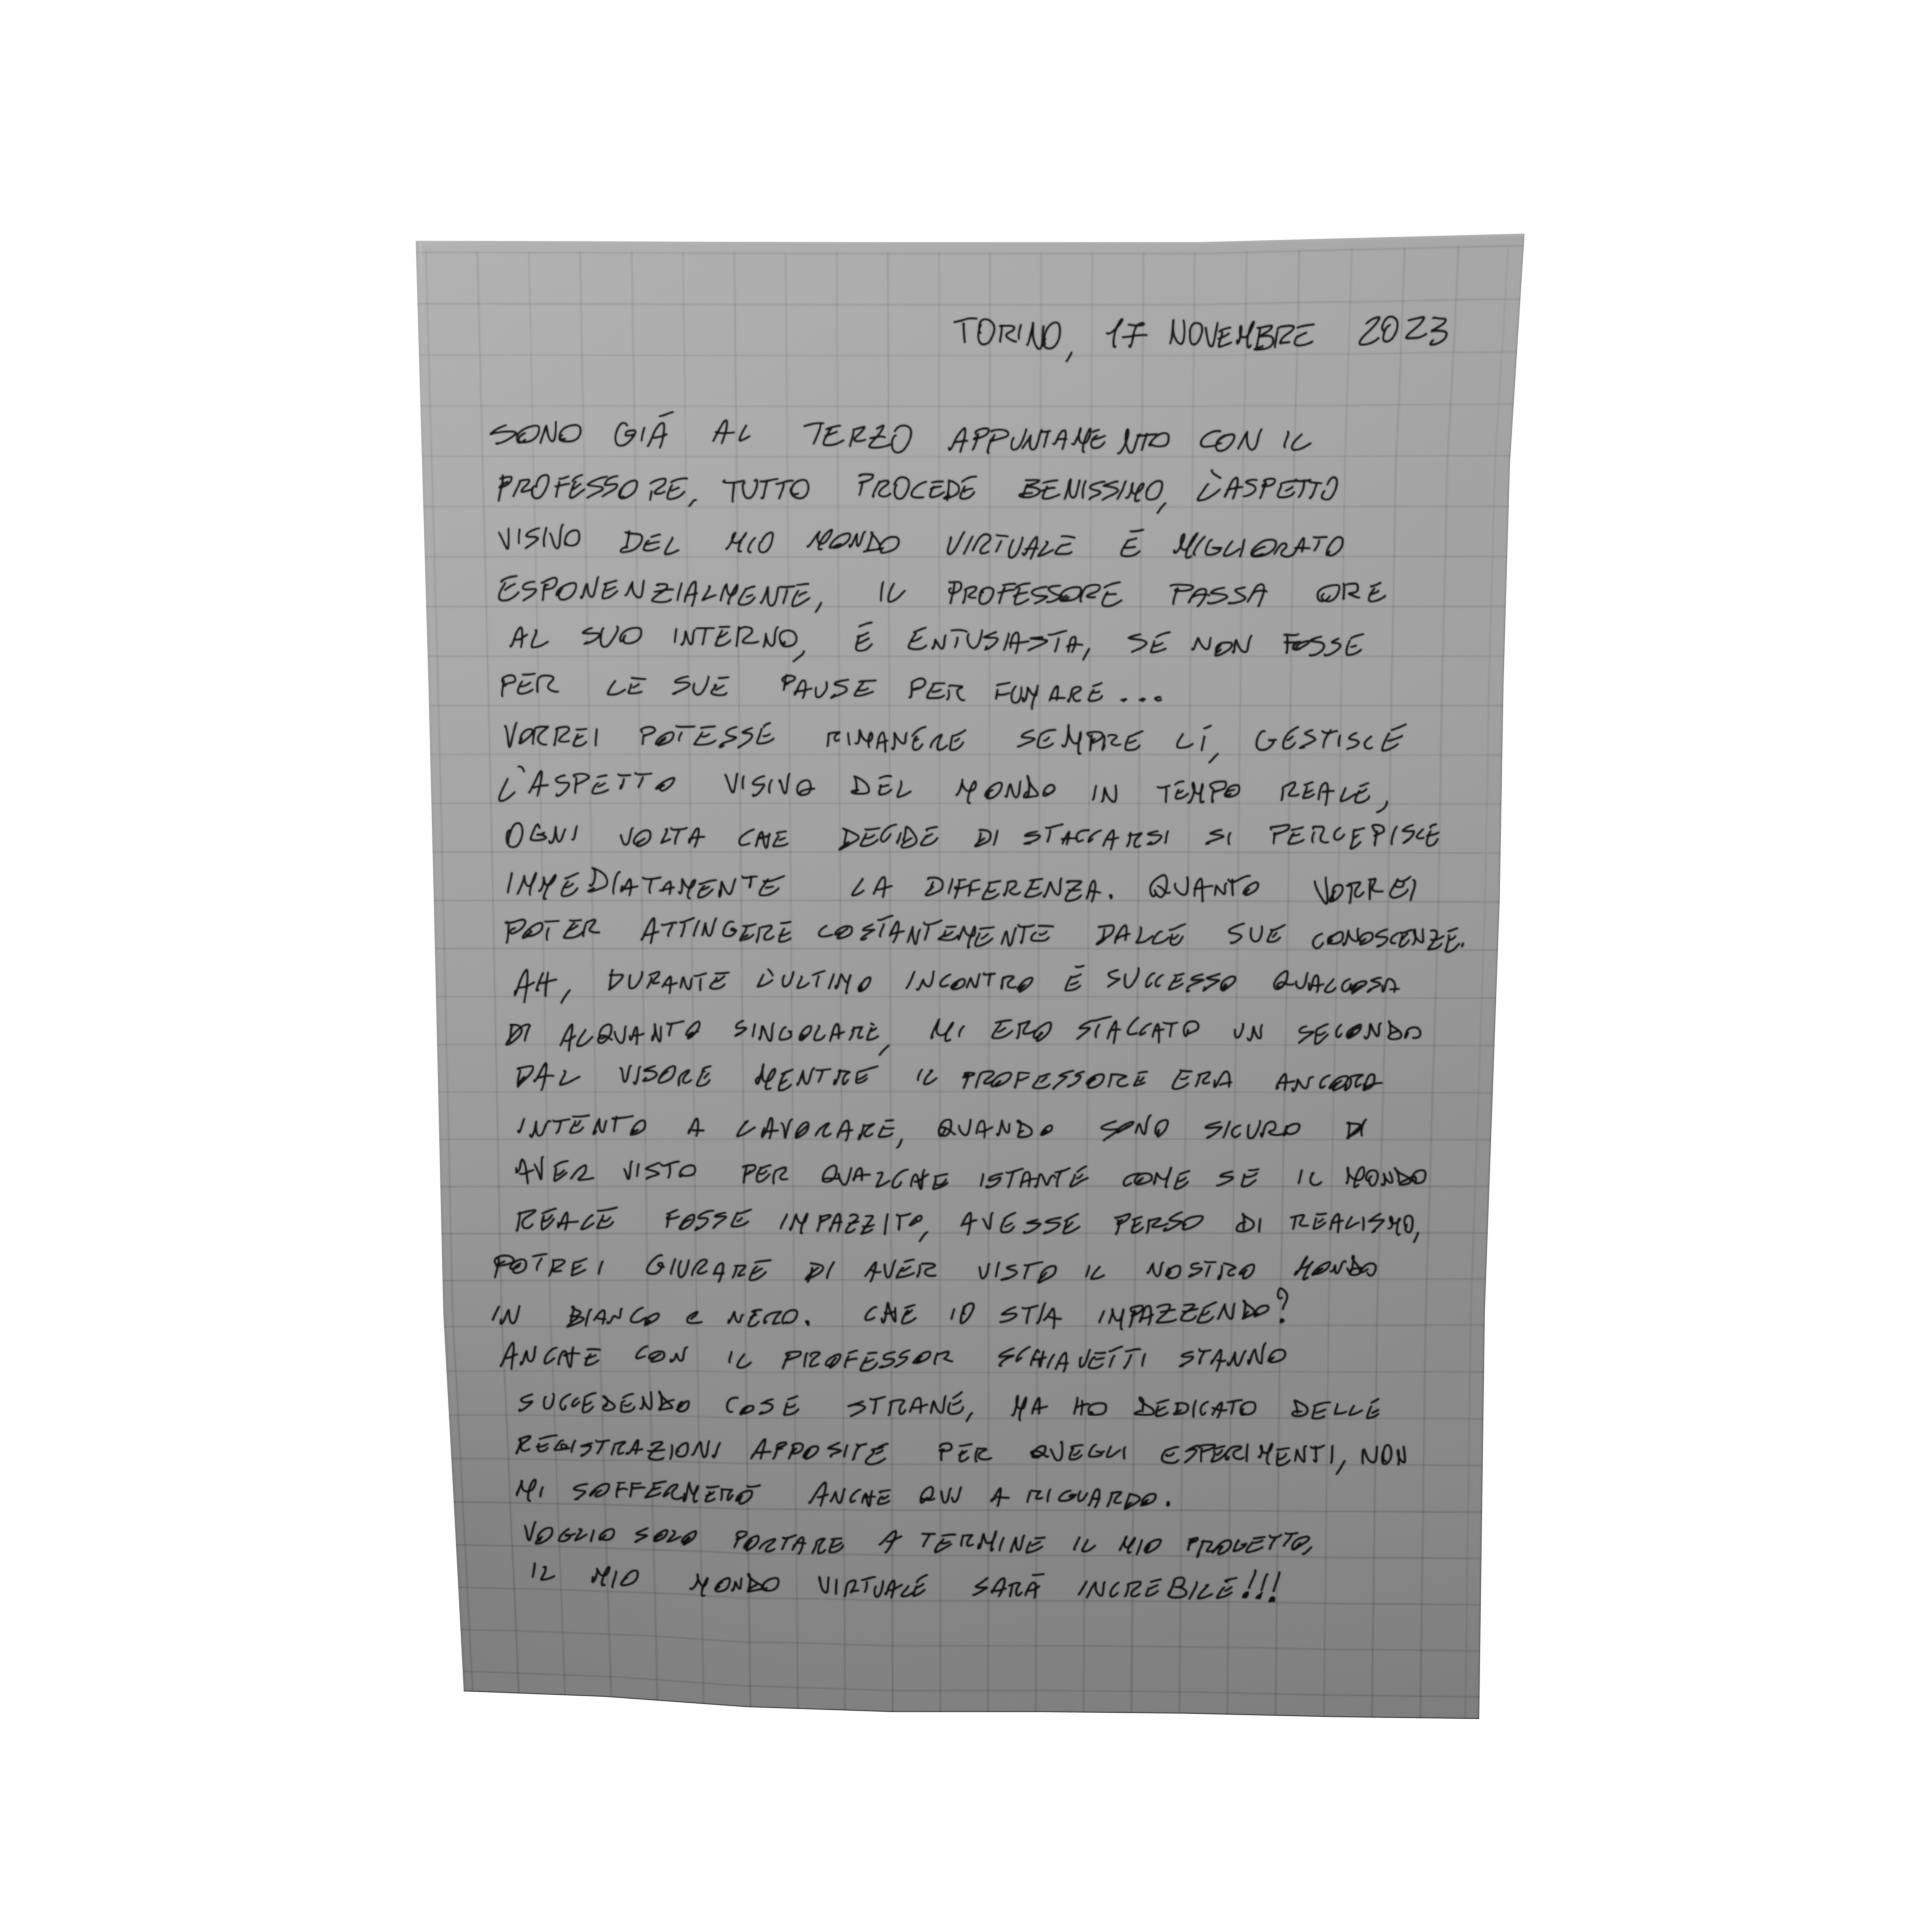 TORINO, 17 NOVEMBRE 2023
SONO GIÀ AL TERZO APPUNTAMENTO CON IL
PROFESSORE, TUTTO PROCEDE BENISSIMO, L'ASPETTO
VISIVO DEL MIO MONDO VIRTUALE È MIGLIORATO
ESPONENZIALMENTE, IL PROFESSORE PASSA ORE
AL SUO INTERNO, È ENTUSIASTA, SE NON FOSSE
PER LE SUE PAUSE PER FUMARE...
VORREI POTESSE RIMANERE SEMPRE LÍ, GESTISCE
L'ASPETTO VISIVO DEL MONDO IN TEMPO REALE,
OGNI VOLTA CHE DECIDE DI STACCARSI SI PERCEPISCE
IMMEDIATAMENTE LA DIFFERENZA. QUANTO VORREI
POTER ATTINGERE COSTANTEMENTE DALLE SUE CONOSCENZE.
AH, DURANTE L'ULTIMO INCONTRO È SUCCESSO QUALCOSA
DI ALQUANTO SINGOLARE, MI ERO STACCATO UN SECONDO
DAL VISORE MENTRE IL PROFESSORE ERA ANCORA
INTENTO A LAVORARE, QUANDO SONO SICURO DI
AVER VISTO PER QUALCHE ISTANTE COME SE IL MONDO
REALE FOSSE IMPAZZITO, AVESSE PERSO DI REALISMO,
POTREI GIURARE DI AVER VISTO IL NOSTRO MONDO
IN BIANCO e NERO. CHE IO STIA IMPAZZENDO?
ANCHE CON IL PROFESSOR SCHIAVETTI STANNO
SUCCEDENDO COSE STRANE, MA HO DEDICATO DELLE
REGISTRAZIONI APPOSITE PER QUEGLI ESPERIMENTI, NON
MI SOFFERMERÒ ANCHE QUI A RIGUARDO.
VOGLIO SOLO PORTARE A TERMINE IL MIO PROGETTO,
IL MIO MONDO VIRTUALE SARÀ INCREBILE!!!